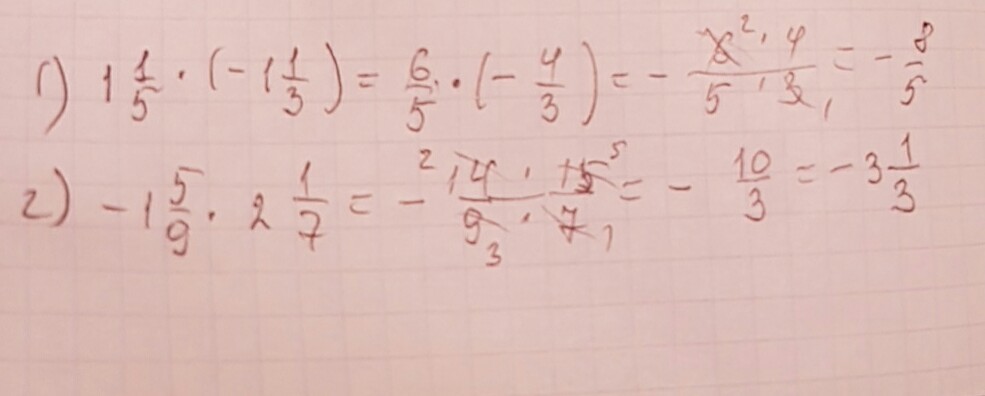 1) 1 1/5 · (-1 1/3) = 6/5 · (- 4/3) = - 6² · 4 / 5 · 3₁ = - 8/5
2) -1 5/9 · 2 1/7 = - ²14 · 15⁵ / 9₃ · 7₁ = - 10/3 = -3 1/3